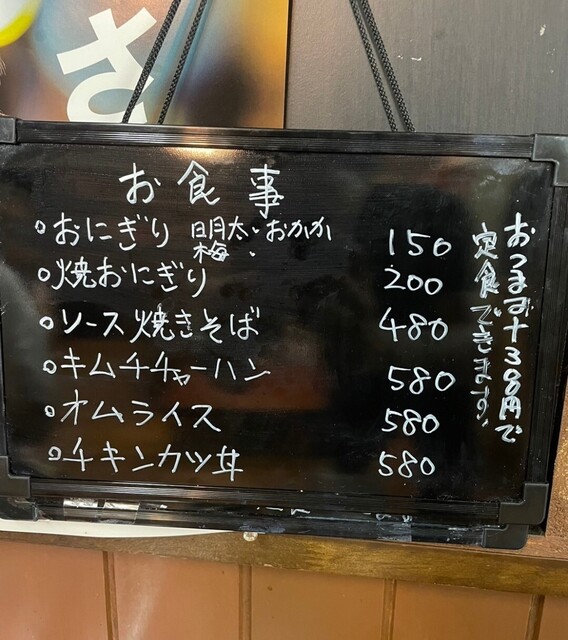 さ
お食事
おにぎり 明太・おかか 150
梅・
焼おにぎり 200
ソース焼きそば 480
キムチチャーハン 580
オムライス 580
チキンカツ丼 580
おつまず+300円で
定食できます!